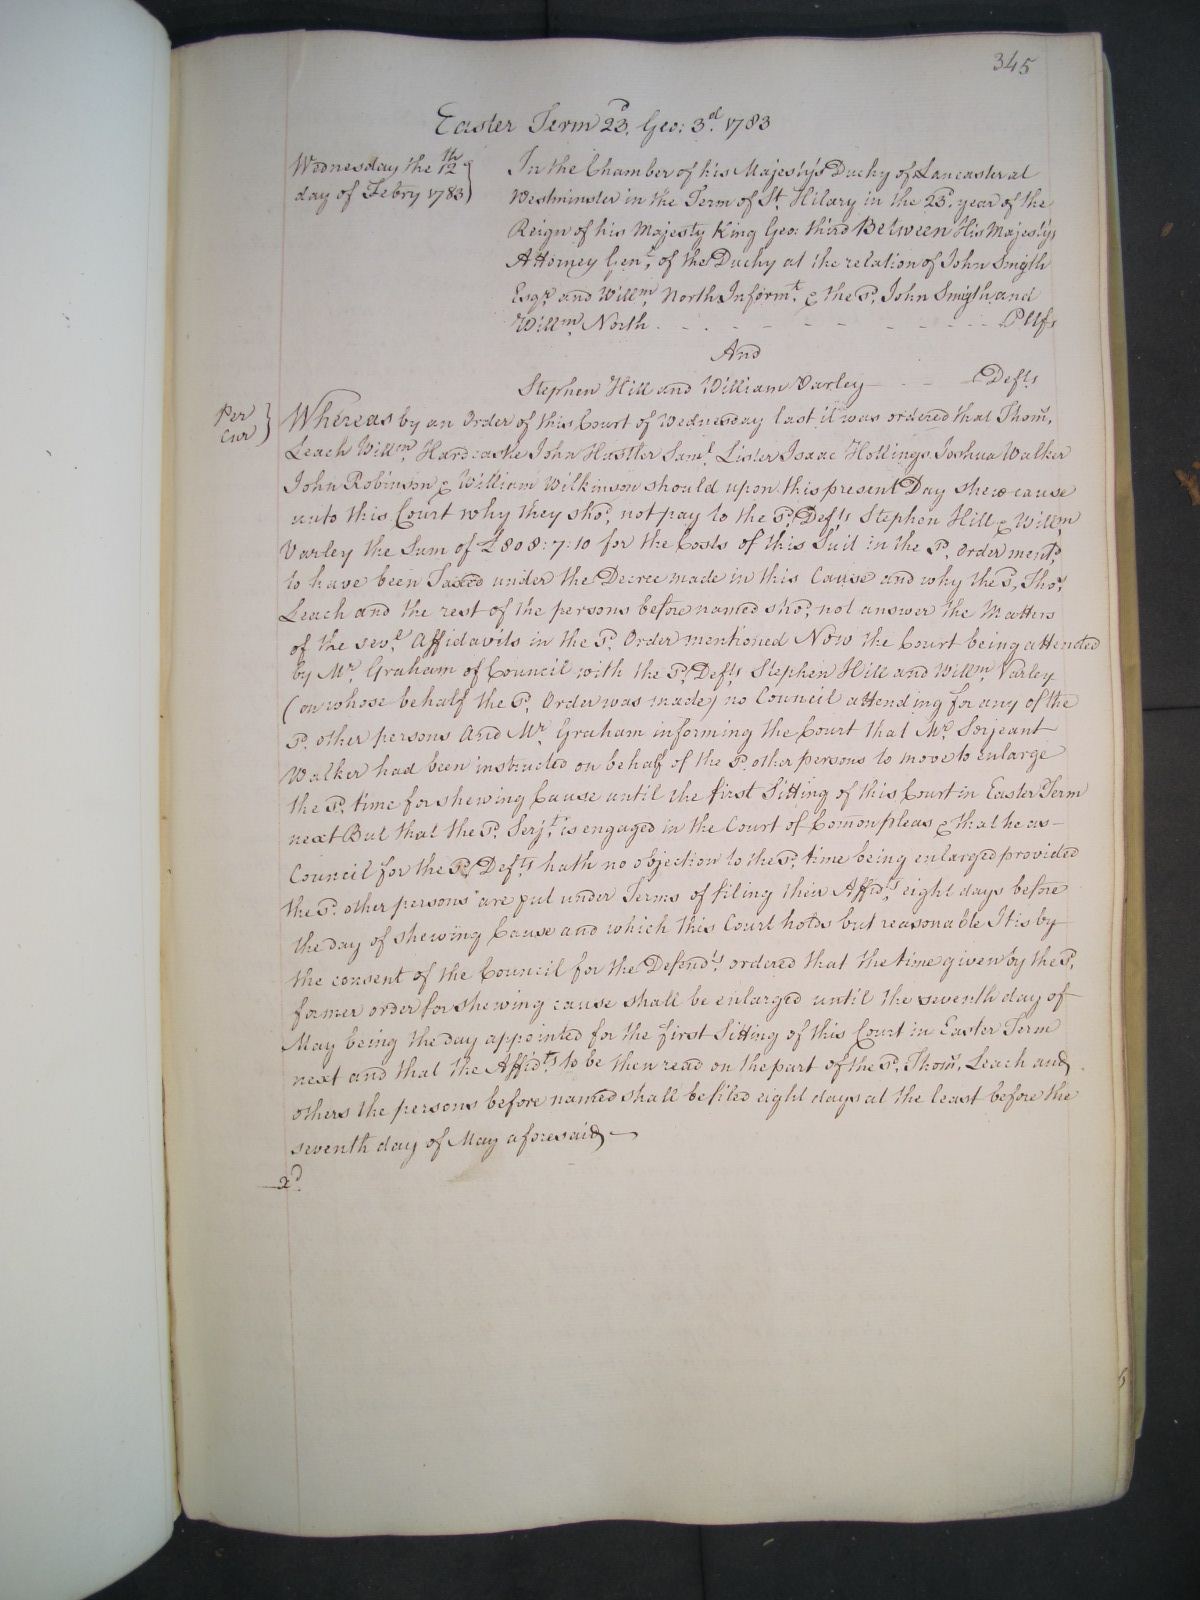 345
Easter Term 23.d Geo: 3.d 1783
Wednesday the 12th
day of Febry 1783
In the Chamber of his Majesty's Duchy of Lancaster at
Westminster in the Term of St. Hilary in the 23.d year of the
Reign of his Majesty King Geo: third Between His Majestys
Attorney Gen.l of the Duchy at the relation of John Smyth
Esq.r and Will.m North Inform.ts & the s.d John Smyth and
Will.m North - - - - - - - - - - Pltfs
And
Stephen Hill and William Varley - - - Defts
Per
Cur
Whereas by an Order of this Court of Wednesday last it was ordered that Thom.s
Leach Will.m Hardcastle John Hustler Sam.l Lister Isaac Hollings Joshua Walker
John Robinson & William Wilkinson should upon this present Day shew cause
unto this Court why they sho.d not pay to the s.d Def.ts Stephen Hill & Will.m
Varley the Sum of £808:7:10 for the Costs of this Suit in the s.d Order ment.d
to have been Taxed under the Decree made in this Cause and why the s.d Tho.s
Leach and the rest of the persons before named sho.d not answer the Matters
of the sev.l Affidavits in the s.d Order mentioned Now the Court being attended
by Mr. Graham of Council with the s.d Def.ts Stephen Hill and Will.m Varley
(on whose behalf the s.d Order was made) no Council attending for any of the
s.d other persons And Mr. Graham informing the Court that Mr. Serjeant
Walker had been instructed on behalf of the s.d other persons to move to enlarge
the s.d time for shewing Cause until the first Sitting of this Court in Easter Term
next But that the s.d Serj.t is engaged in the Court of Comon pleas & that he as
Council for the s.d Def.ts hath no objection to the s.d time being enlarged provided
the s.d other persons are put under Terms of filing their Affid.ts eight days before
the day of shewing Cause and which this Court holds but reasonable It is by
the consent of the Council for the Defend.ts ordered that the time given by the s.d
former order for shewing cause shall be enlarged until the seventh day of
May being the day appointed for the first Sitting of this Court in Easter Term
next and that the Affid.ts to be then read on the part of the s.d Thom.s Leach and
others the persons before named shall be filed eight days at the least before the
seventh day of May aforesaid